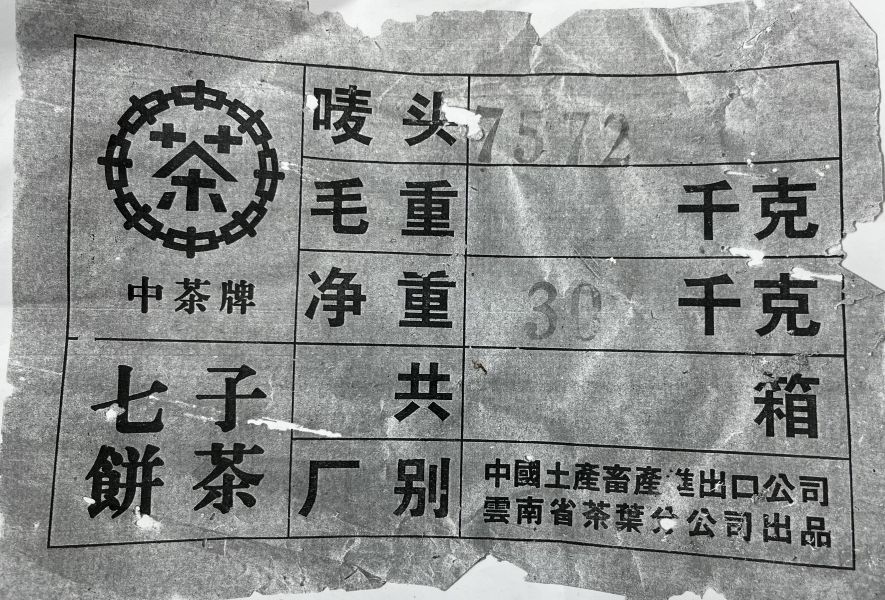 茶
中茶牌
七子
餅茶
唛头 7572
毛重 千克
净重 30 千克
共 箱
厂别 中國土產畜產進出口公司
雲南省茶葉分公司出品